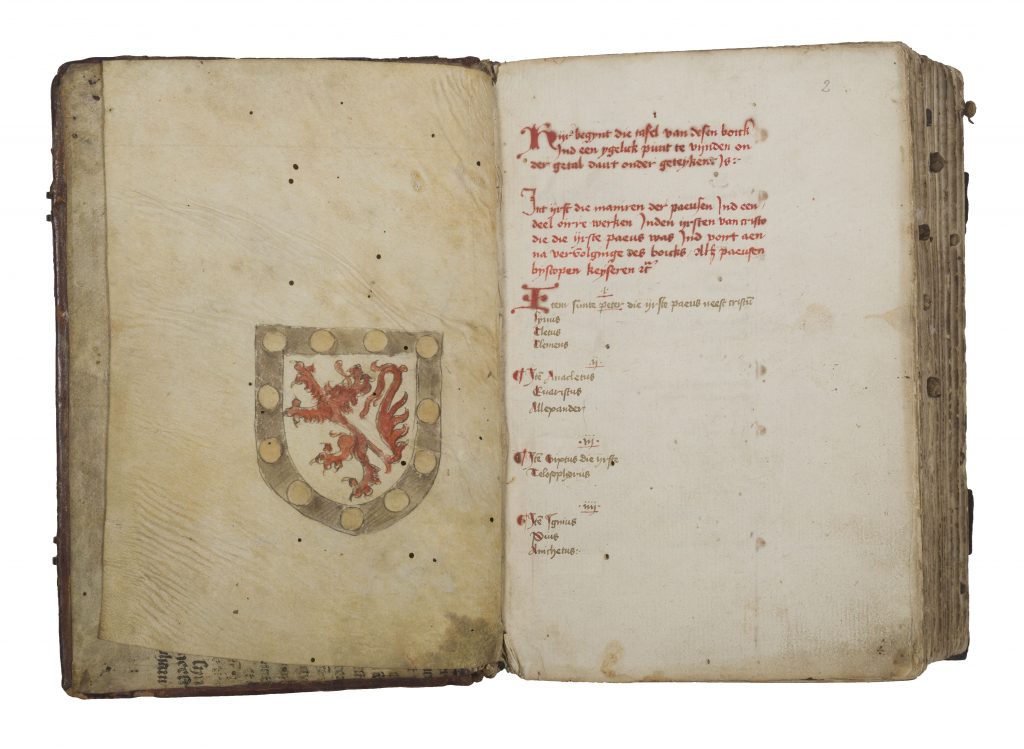 2
i
Hijr begynt die tafel van desen boick
Ind een ygeluk punt te vijnden on
der getal dair onder geteykent is:
Int ijrst die namren der paeusen Ind een
deel oirre werken Inden ijrsten van cristo
die die ijrste paeus was Ind vort aen
na vervolginge des boicks Alsz paeusen
bysscopen keyseren
i
Item sunte peter die ijrste paeus neest cristū
Lynus
Cletus
Clemens
ij
Itē Anacletus
Evaristus
Allexander
iij
Itē Sixtus die ijrste
Telosephorus
iiij
Itē Igmus
Pius
Anichetus: